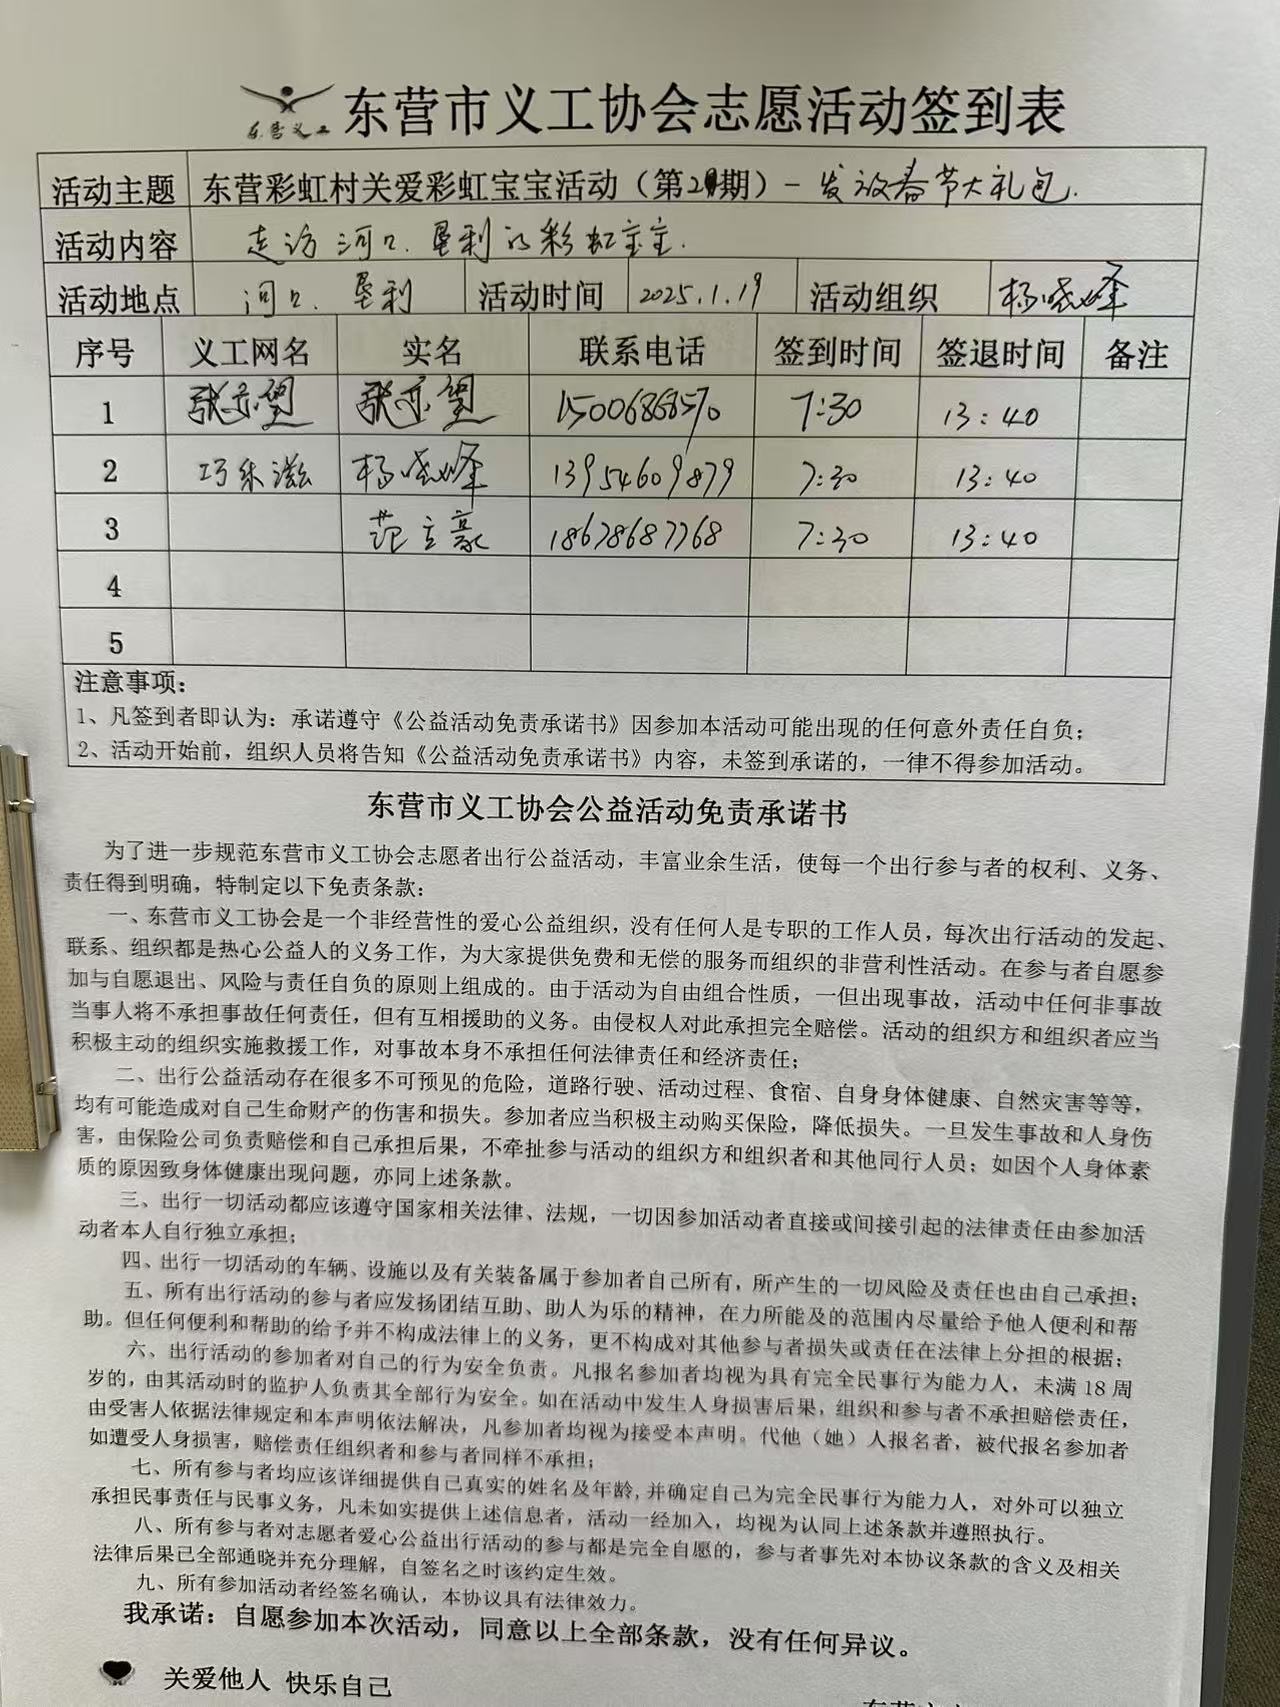 东营义工 东营市义工协会志愿活动签到表
活动主题 东营彩虹村关爱彩虹宝宝活动（第2期）- 发放春节大礼包.
活动内容 走访河口.垦利的彩虹宝宝.
活动地点 河口.垦利 活动时间 2025.1.19 活动组织 杨晓峰
序号 义工网名 实名 联系电话 签到时间 签退时间 备注
1 张亦塱 张亦塱 15006868570 7:30 13:40
2 巧乐滋 杨晓峰 13954609879 7:30 13:40
3 范立豪 18678687768 7:30 13:40
4
5
注意事项：
1、凡签到者即认为：承诺遵守《公益活动免责承诺书》因参加本活动可能出现的任何意外责任自负；
2、活动开始前，组织人员将告知《公益活动免责承诺书》内容，未签到承诺的，一律不得参加活动。
东营市义工协会公益活动免责承诺书
为了进一步规范东营市义工协会志愿者出行公益活动，丰富业余生活，使每一个出行参与者的权利、义务、
责任得到明确，特制定以下免责条款：
一、东营市义工协会是一个非经营性的爱心公益组织，没有任何人是专职的工作人员，每次出行活动的发起、
联系、组织都是热心公益人的义务工作，为大家提供免费和无偿的服务而组织的非营利性活动。在参与者自愿参
加与自愿退出、风险与责任自负的原则上组成的。由于活动为自由组合性质，一但出现事故，活动中任何非事故
当事人将不承担事故任何责任，但有互相援助的义务。由侵权人对此承担完全赔偿。活动的组织方和组织者应当
积极主动的组织实施救援工作，对事故本身不承担任何法律责任和经济责任；
二、出行公益活动存在很多不可预见的危险，道路行驶、活动过程、食宿、自身身体健康、自然灾害等等，
均有可能造成对自己生命财产的伤害和损失。参加者应当积极主动购买保险，降低损失。一旦发生事故和人身伤
害，由保险公司负责赔偿和自己承担后果，不牵扯参与活动的组织方和组织者和其他同行人员；如因个人身体素
质的原因致身体健康出现问题，亦同上述条款。
三、出行一切活动都应该遵守国家相关法律、法规，一切因参加活动者直接或间接引起的法律责任由参加活
动者本人自行独立承担；
四、出行一切活动的车辆、设施以及有关装备属于参加者自己所有，所产生的一切风险及责任也由自己承担；
五、所有出行活动的参与者应发扬团结互助、助人为乐的精神，在力所能及的范围内尽量给予他人便利和帮
助。但任何便利和帮助的给予并不构成法律上的义务，更不构成对其他参与者损失或责任在法律上分担的根据；
六、出行活动的参加者对自己的行为安全负责。凡报名参加者均视为具有完全民事行为能力人，未满 18 周
岁的，由其活动时的监护人负责其全部行为安全。如在活动中发生人身损害后果，组织和参与者不承担赔偿责任，
由受害人依据法律规定和本声明依法解决，凡参加者均视为接受本声明。代他（她）人报名者，被代报名参加者
如遭受人身损害，赔偿责任组织者和参与者同样不承担；
七、所有参与者均应该详细提供自己真实的姓名及年龄,并确定自己为完全民事行为能力人，对外可以独立
承担民事责任与民事义务，凡未如实提供上述信息者，活动一经加入，均视为认同上述条款并遵照执行。
八、所有参与者对志愿者爱心公益出行活动的参与都是完全自愿的，参与者事先对本协议条款的含义及相关
法律后果已全部通晓并充分理解，自签名之时该约定生效。
九、所有参加活动者经签名确认，本协议具有法律效力。
我承诺：自愿参加本次活动，同意以上全部条款，没有任何异议。
关爱他人 快乐自己